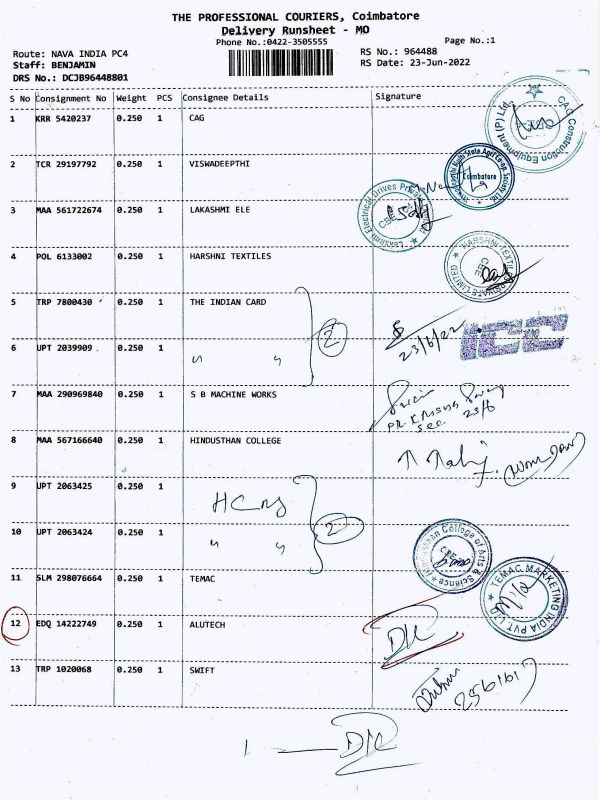 THE PROFESSIONAL COURIERS, Coimbatore
Delivery Runsheet - MO
Phone No.:0422-3505555
Page No.:1
Route: NAVA INDIA PC4
RS No.: 964488
Staff: BENJAMIN
RS Date: 23-Jun-2022
DRS No.: DCJB96448801
S No Consignment No Weight PCS Consignee Details Signature
1 KRR 5420237 0.250 1 CAG
CAG Construction Equipment (P) Ltd.
2 TCR 29197792 0.250 1 VISWADEEPTHI
Coimbatore
3 MAA 561722674 0.250 1 LAKASHMI ELE
4 POL 6133002 0.250 1 HARSHNI TEXTILES
5 TRP 7800430 0.250 1 THE INDIAN CARD
2
23/6/22
ICC
6 UPT 2039909 0.250 1 " "
7 MAA 290969840 0.250 1 S B MACHINE WORKS
23/6
8 MAA 567166640 0.250 1 HINDUSTHAN COLLEGE
9 UPT 2063425 0.250 1
2
10 UPT 2063424 0.250 1 " "
11 SLM 298076664 0.250 1 TEMAC
TEMAC MARKETING INDIA PVT LTD
12 EDQ 14222749 0.250 1 ALUTECH
13 TRP 1020068 0.250 1 SWIFT